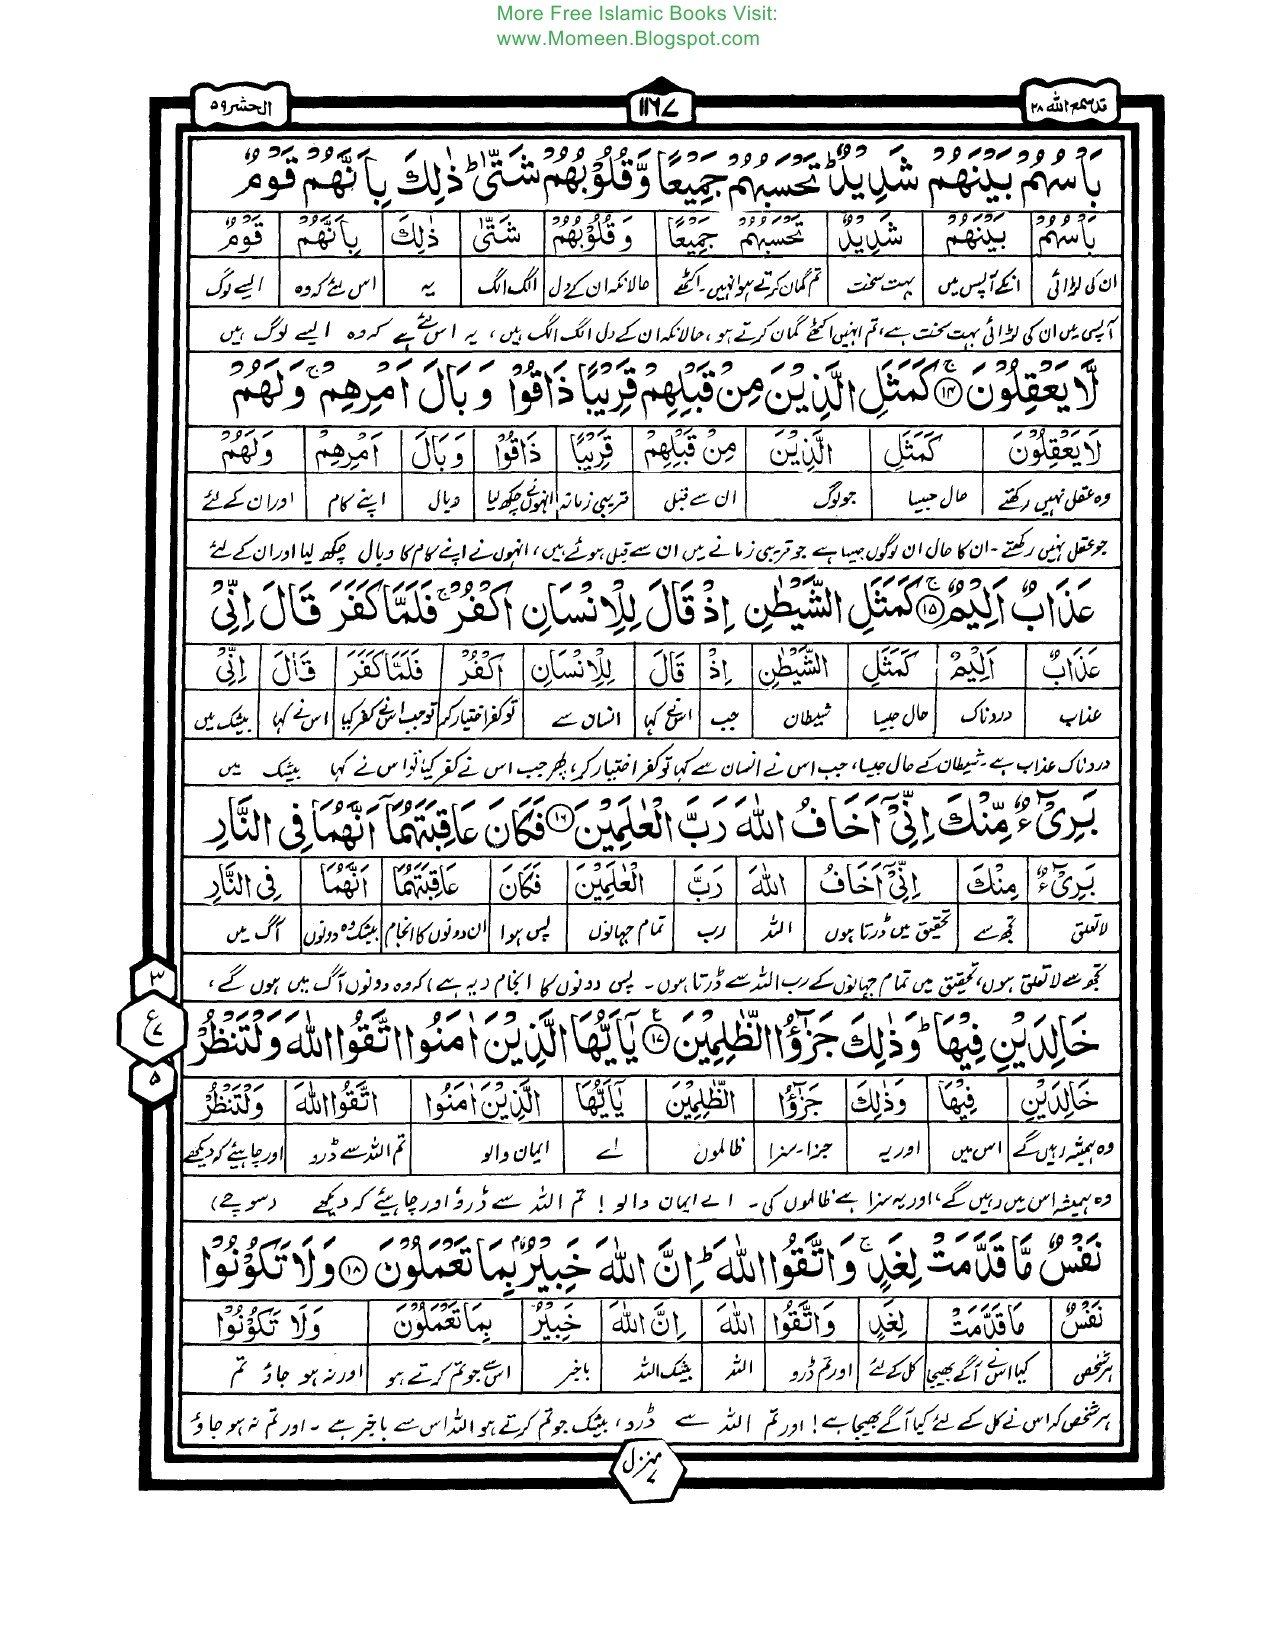 More Free Islamic Books Visit:
www.Momeen.Blogspot.com
قد سمع الله ۲۸
۱۱۶۷
الحشر ۵۹
بَاْسُهُمْ بَيْنَهُمْ شَدِيْدٌ ؕ تَحْسَبُهُمْ جَمِيْعًا وَّقُلُوْبُهُمْ شَتّٰى ؕ ذٰلِكَ بِاَنَّهُمْ قَوْمٌ
بَاْسُهُمْ بَيْنَهُمْ شَدِيْدٌ تَحْسَبُهُمْ جَمِيْعًا وَقُلُوْبُهُمْ شَتّٰى ذٰلِكَ بِاَنَّهُمْ قَوْمٌ
ان کی لڑائی انکے آپس میں بہت سخت تم گمان کرتے ہو انہیں۔ اکٹھے حالانکہ ان کے دل الگ الگ یہ اس لئے کہ وہ ایسے لوگ
آپس میں ان کی لڑائی بہت سخت ہے، تم انہیں اکٹھے گمان کرتے ہو، حالانکہ ان کے دل الگ الگ ہیں، یہ اس لئے ہے کہ وہ ایسے لوگ ہیں
لَّا يَعْقِلُوْنَ ۱۴ كَمَثَلِ الَّذِيْنَ مِنْ قَبْلِهِمْ قَرِيْبًا ذَاقُوْا وَبَالَ اَمْرِهِمْ ۚ وَلَهُمْ
لَا يَعْقِلُوْنَ كَمَثَلِ الَّذِيْنَ مِنْ قَبْلِهِمْ قَرِيْبًا ذَاقُوْا وَبَالَ اَمْرِهِمْ وَلَهُمْ
وہ عقل نہیں رکھتے حال جیسا جو لوگ ان سے قبل قریبی زمانہ انہوں نے چکھ لیا وبال اپنے کام اور ان کے لئے
جو عقل نہیں رکھتے۔ ان کا حال ان لوگوں جیسا ہے جو قریبی زمانے میں ان سے قبل ہوئے ہیں، انہوں نے اپنے کام کا وبال چکھ لیا اور ان کے لئے
عَذَابٌ اَلِيْمٌ ۱۵ كَمَثَلِ الشَّيْطٰنِ اِذْ قَالَ لِلْاِنْسَانِ اكْفُرْ ۚ فَلَمَّا كَفَرَ قَالَ اِنِّىْ
عَذَابٌ اَلِيْمٌ كَمَثَلِ الشَّيْطٰنِ اِذْ قَالَ لِلْاِنْسَانِ اكْفُرْ فَلَمَّا كَفَرَ قَالَ اِنِّىْ
عذاب دردناک حال جیسا شیطان جب اس نے کہا انسان سے تو کفر اختیار کر تو جب اس نے کفر کیا اس نے کہا بیشک میں
دردناک عذاب ہے۔ شیطان کے حال جیسا، جب اس نے انسان سے کہا تو کفر اختیار کر، پھر جب اس نے کفر کیا تو اس نے کہا بیشک میں
بَرِىْٓءٌ مِّنْكَ اِنِّىْٓ اَخَافُ اللّٰهَ رَبَّ الْعٰلَمِيْنَ ۱۶ فَكَانَ عَاقِبَتَهُمَآ اَنَّهُمَا فِى النَّارِ
بَرِىْٓءٌ مِنْكَ اِنِّىْٓ اَخَافُ اللّٰهَ رَبَّ الْعٰلَمِيْنَ فَكَانَ عَاقِبَتَهُمَآ اَنَّهُمَا فِى النَّارِ
لاتعلق تجھ سے تحقیق میں ڈرتا ہوں اللہ رب تمام جہانوں پس ہوا ان دونوں کا انجام بیشک وہ دونوں آگ میں
تجھ سے لاتعلق ہوں، تحقیق میں تمام جہانوں کے رب اللہ سے ڈرتا ہوں۔ پس دونوں کا انجام دیہ ہے، کہ وہ دونوں آگ میں ہوں گے،
۳
ع
۷
۵
خَالِدَيْنِ فِيْهَا ؕ وَذٰلِكَ جَزٰٓؤُا الظّٰلِمِيْنَ ۱۷ يٰۤاَيُّهَا الَّذِيْنَ اٰمَنُوا اتَّقُوا اللّٰهَ وَلْتَنْظُرْ
خَالِدَيْنِ فِيْهَا وَذٰلِكَ جَزٰٓؤُا الظّٰلِمِيْنَ يٰۤاَيُّهَا الَّذِيْنَ اٰمَنُوا اتَّقُوا اللّٰهَ وَلْتَنْظُرْ
وہ ہمیشہ رہیں گے اس میں اور یہ جزا۔ سزا ظالموں اے ایمان والو تم اللہ سے ڈرو اور چاہیئے کہ دیکھے
وہ ہمیشہ اس میں رہیں گے، اور یہ سزا ہے ظالموں کی۔ اے ایمان والو! تم اللہ سے ڈرو، اور چاہیئے کہ دیکھے (سوچے)
نَفْسٌ مَّا قَدَّمَتْ لِغَدٍ ۚ وَاتَّقُوا اللّٰهَ ؕ اِنَّ اللّٰهَ خَبِيْرٌۢ بِمَا تَعْمَلُوْنَ ۱۸ وَلَا تَكُوْنُوْا
نَفْسٌ مَا قَدَّمَتْ لِغَدٍ وَاتَّقُوا اللّٰهَ اِنَّ اللّٰهَ خَبِيْرٌ بِمَا تَعْمَلُوْنَ وَلَا تَكُوْنُوْا
ہر شخص کیا اس نے آگے بھیجا کل کے لئے اور تم ڈرو اللہ بیشک اللہ باخبر اس سے جو تم کرتے ہو اور نہ ہو جاؤ تم
ہر شخص کہ اس نے کل کے لئے کیا آگے بھیجا ہے! اور تم اللہ سے ڈرو، بیشک جو تم کرتے ہو اللہ اس سے باخبر ہے۔ اور تم نہ ہو جاؤ
منزل ۷